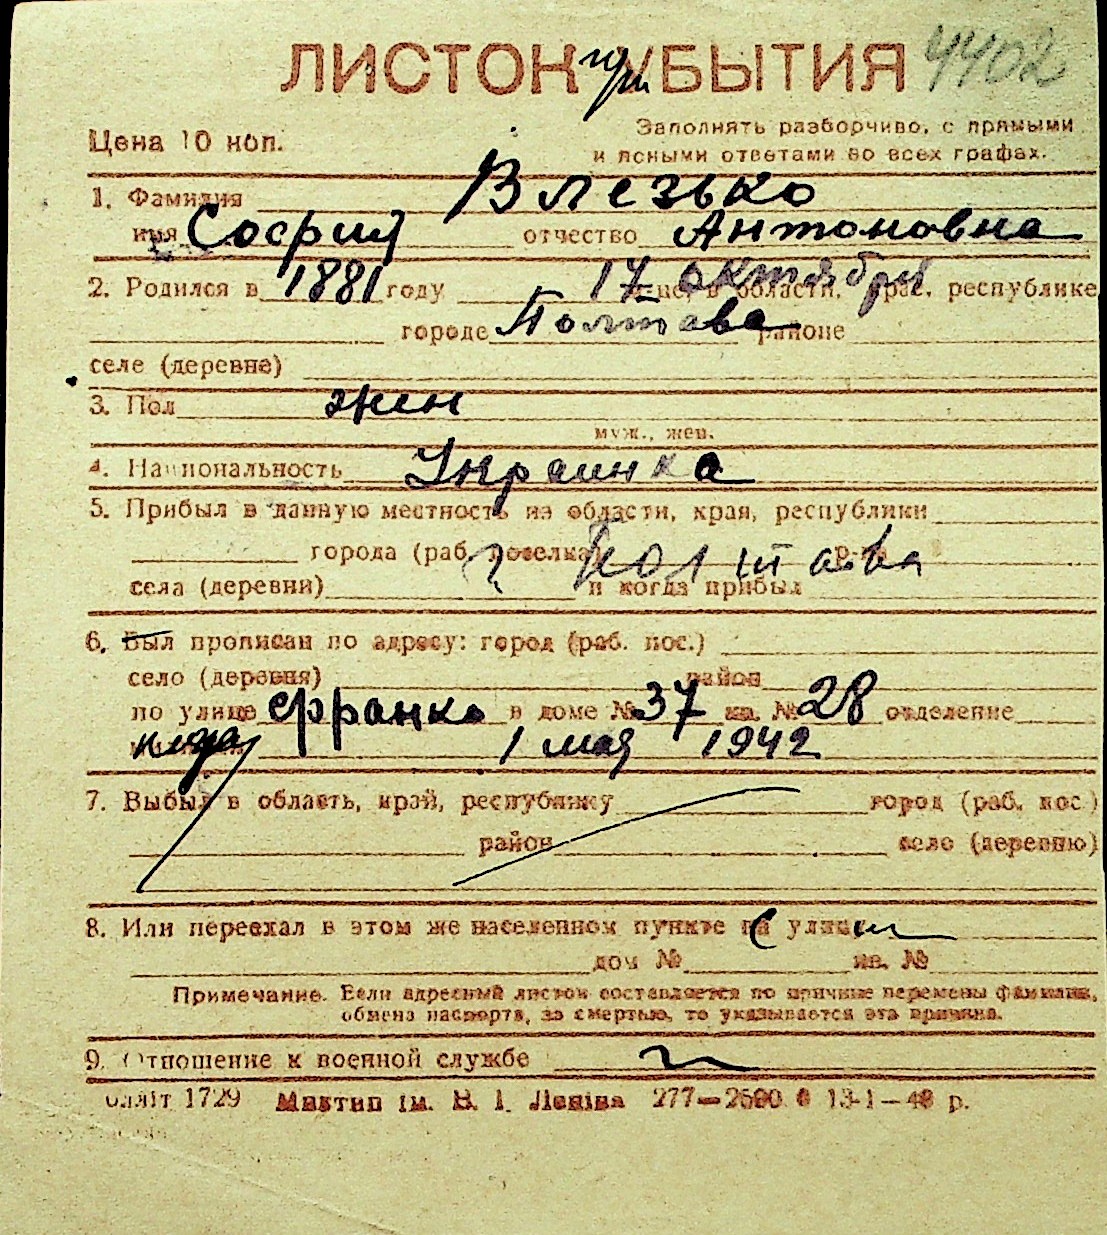 ЛИСТОК при УБЫТИЯ 4402
Цена 10 коп.
Заполнять разборчиво, с прямыми
и ясными ответами во всех графах.
1. Фамилия Влезько
имя София отчество Антоновна
2. Родился в 1881 году 17 октября месяце, в области, крае, республике
городе Полтава районе
селе (деревне)
3. Пол жен
муж., жен.
4. Национальность Украинка
5. Прибыл в данную местность из области, края, республики
города (раб. поселка) г Полтава р-на
села (деревни) и когда прибыл
6. Был прописан по адресу: город (раб. пос.)
село (деревня) район
по улице Франка в доме № 37 кв. № 28 отделение
1 мая 1942
7. Выбыл в область, край, республику город (раб. пос.)
район село (деревню)
8. Или переехал в этом же населенном пункте на улицу
дом № кв. №
Примечание. Если адресный листок составляется по причине перемены фамилии,
обмена паспорта, за смертью, то указывается эта причина.
9. Отношение к военной службе
Облліт 1729 Миктип ім. В. І. Леніна 277—2500 13-1—40 р.